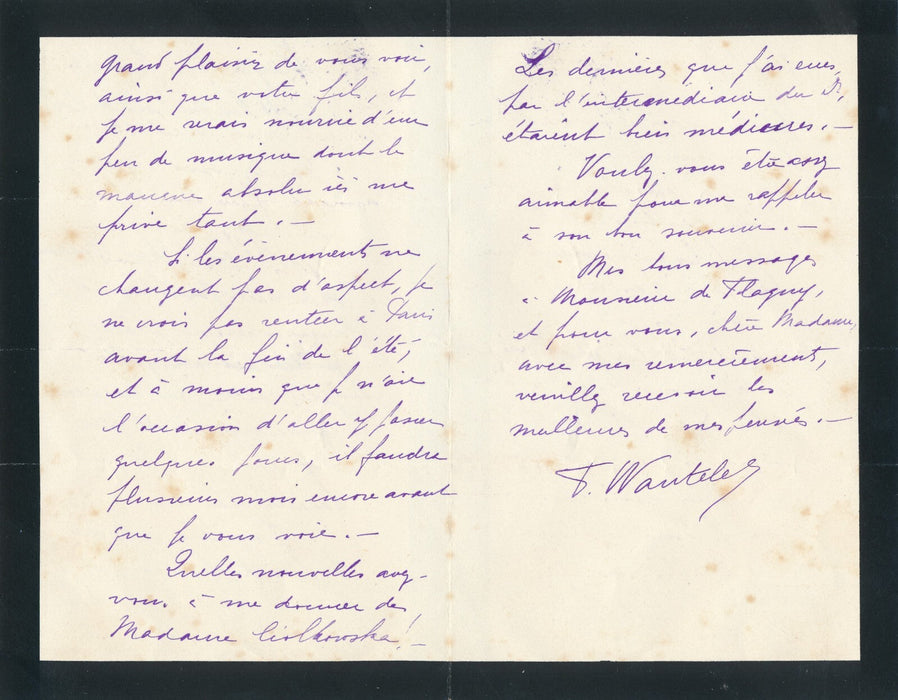 grand plaisir de vous voir,
ainsi que votre fils, et
je me serais nourrie d'un
peu de musique dont le
manque absolu ici me
prive tant. —
Si les évènements ne
changent pas d'aspect, je
ne crois pas rentrer à Paris
avant la fin de l'été,
et à moins que je n'aie
l'occasion d'aller y passer
quelques jours, il faudra
plusieurs mois encore avant
que je vous voie. —
Quelles nouvelles avez-
vous à me donner de
Madame Ciolkowska! —
Les dernières que j'ai eues,
par l'intermédiaire du Dr,
étaient bien médiocres. —
Voulez-vous être assez
aimable pour me rappeler
à son bon souvenir. —
Mes bons messages
à Monsieur de Flagny,
et pour vous, chère Madame,
avec mes remerciements,
veuillez recevoir les
meilleures de mes pensées. —